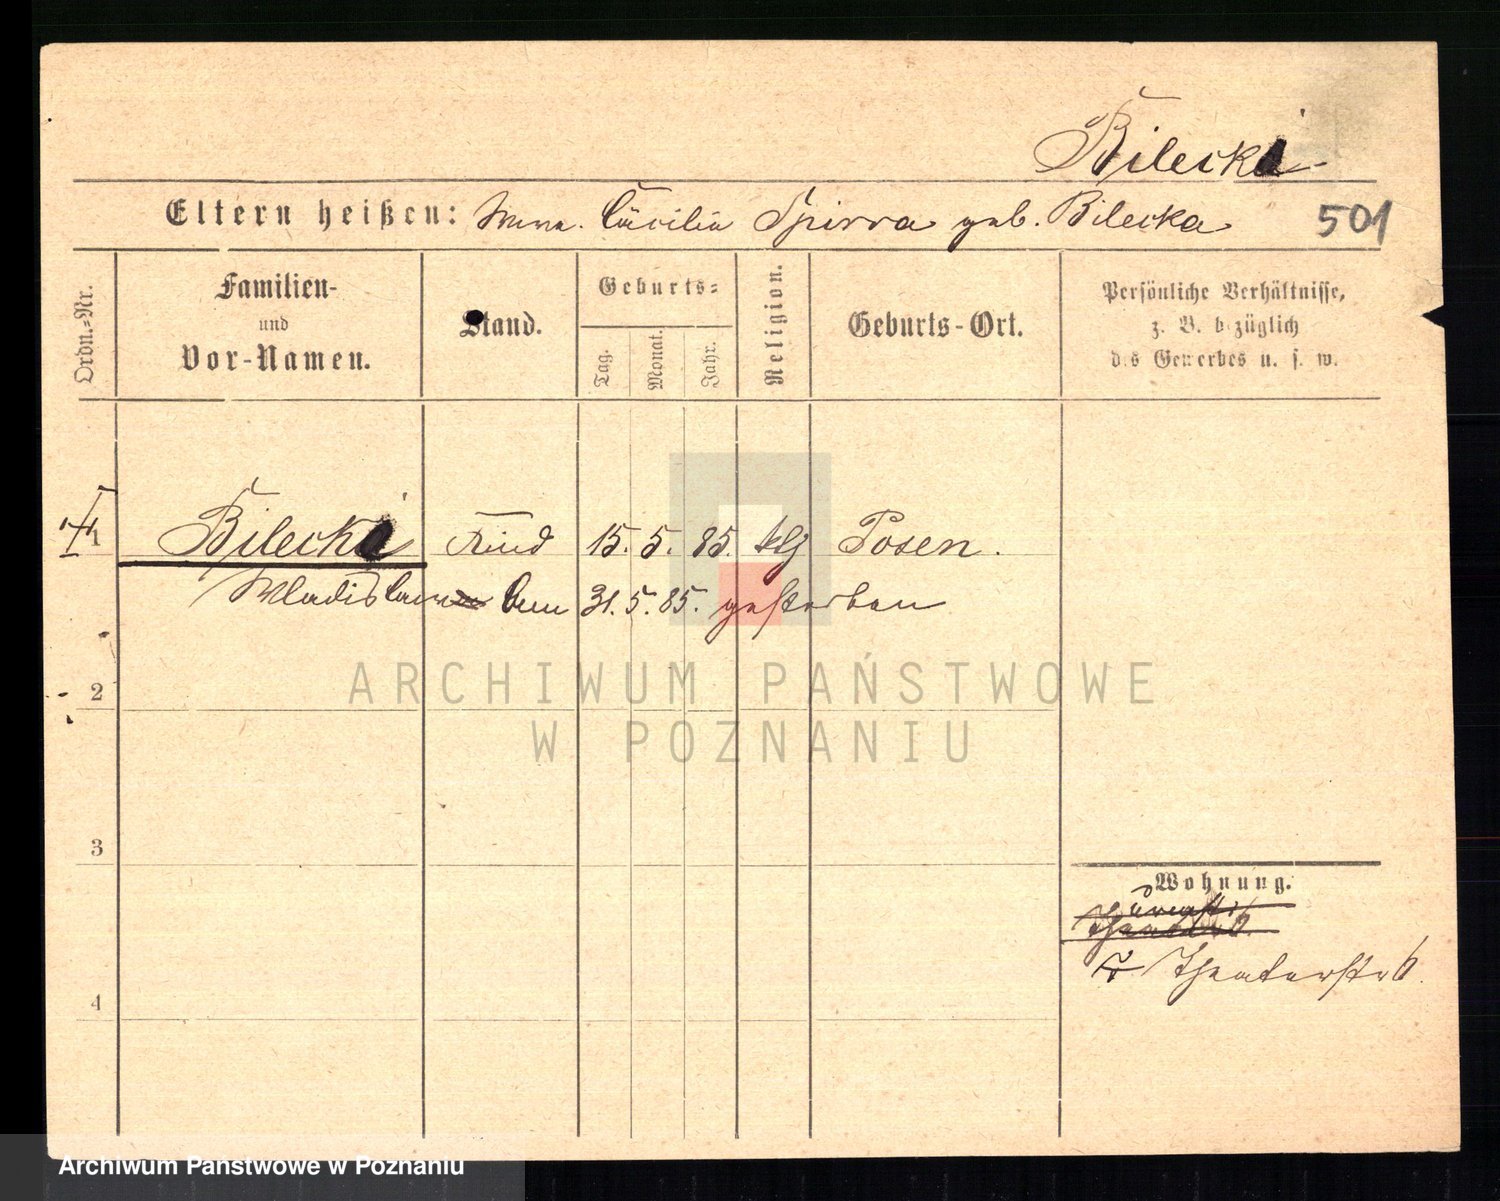 Bilecki
Eltern heißen: Cäcilia Spirra geb. Bilecka 501
Ordn.=Nr.
Familien-
und
Vor-Namen.
Stand.
Geburts=
Tag.
Monat.
Jahr.
Religion.
Geburts-Ort.
Persönliche Verhältnisse,
z. B. bezüglich
des Gewerbes u. s. w.
1 Bilecki Kind 15. 5. 85. ktlz Posen.
Wladislaus Am 31. 5. 85. gestorben
2
3
4
Wohnung.
Theaterstr 6.
ARCHIWUM PAŃSTWOWE
W POZNANIU
Archiwum Państwowe w Poznaniu